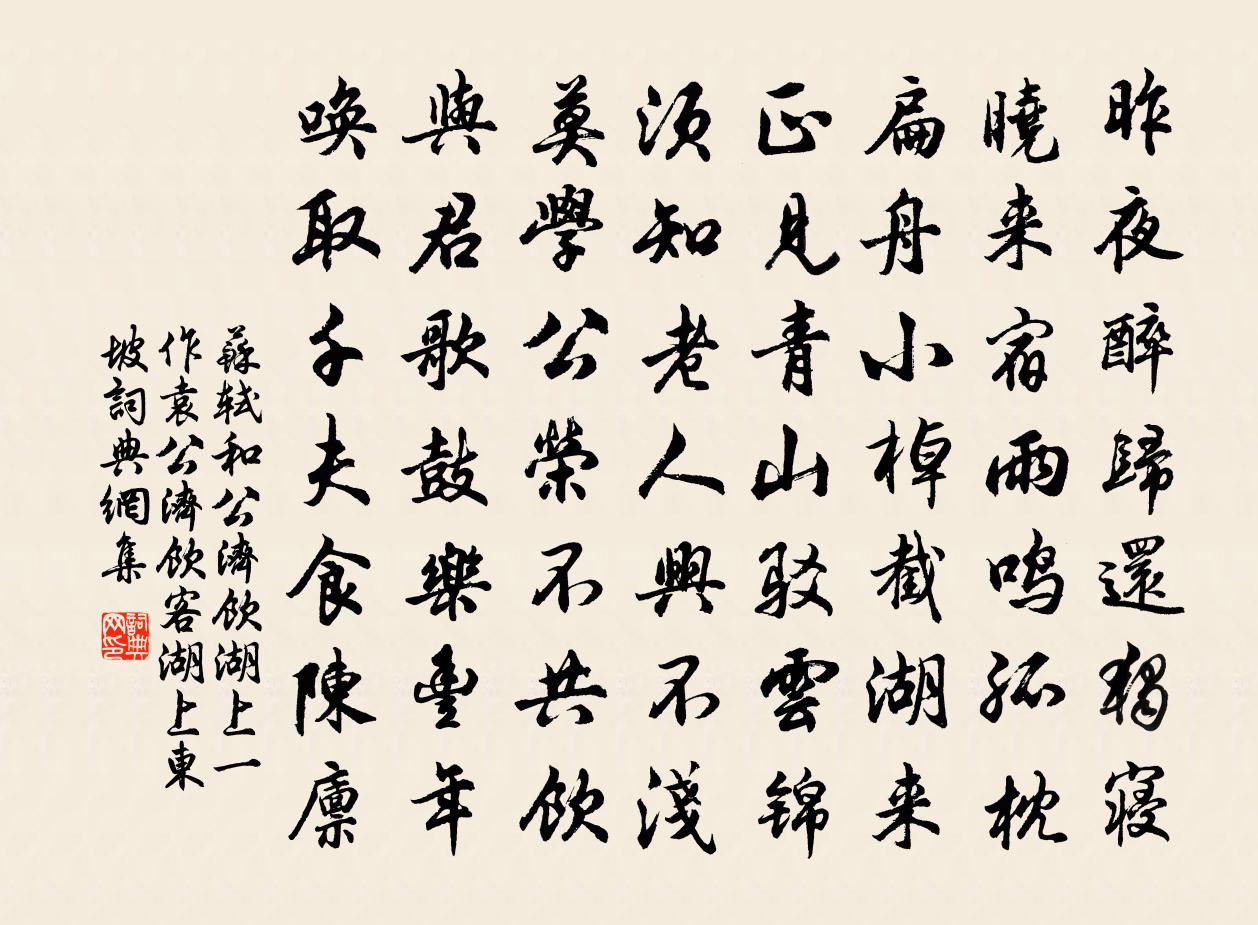 昨夜醉歸還獨寢
曉来宿雨鳴孤枕
扁舟小棹截湖来
正見青山駁雲锦
須知老人興不淺
莫學公榮不共飲
與君歌鼓樂豐年
喚取千夫食陳廪
蘇轼和公濟飲湖上一
作袁公濟飲客湖上東
坡詞典網集
詞典
网印